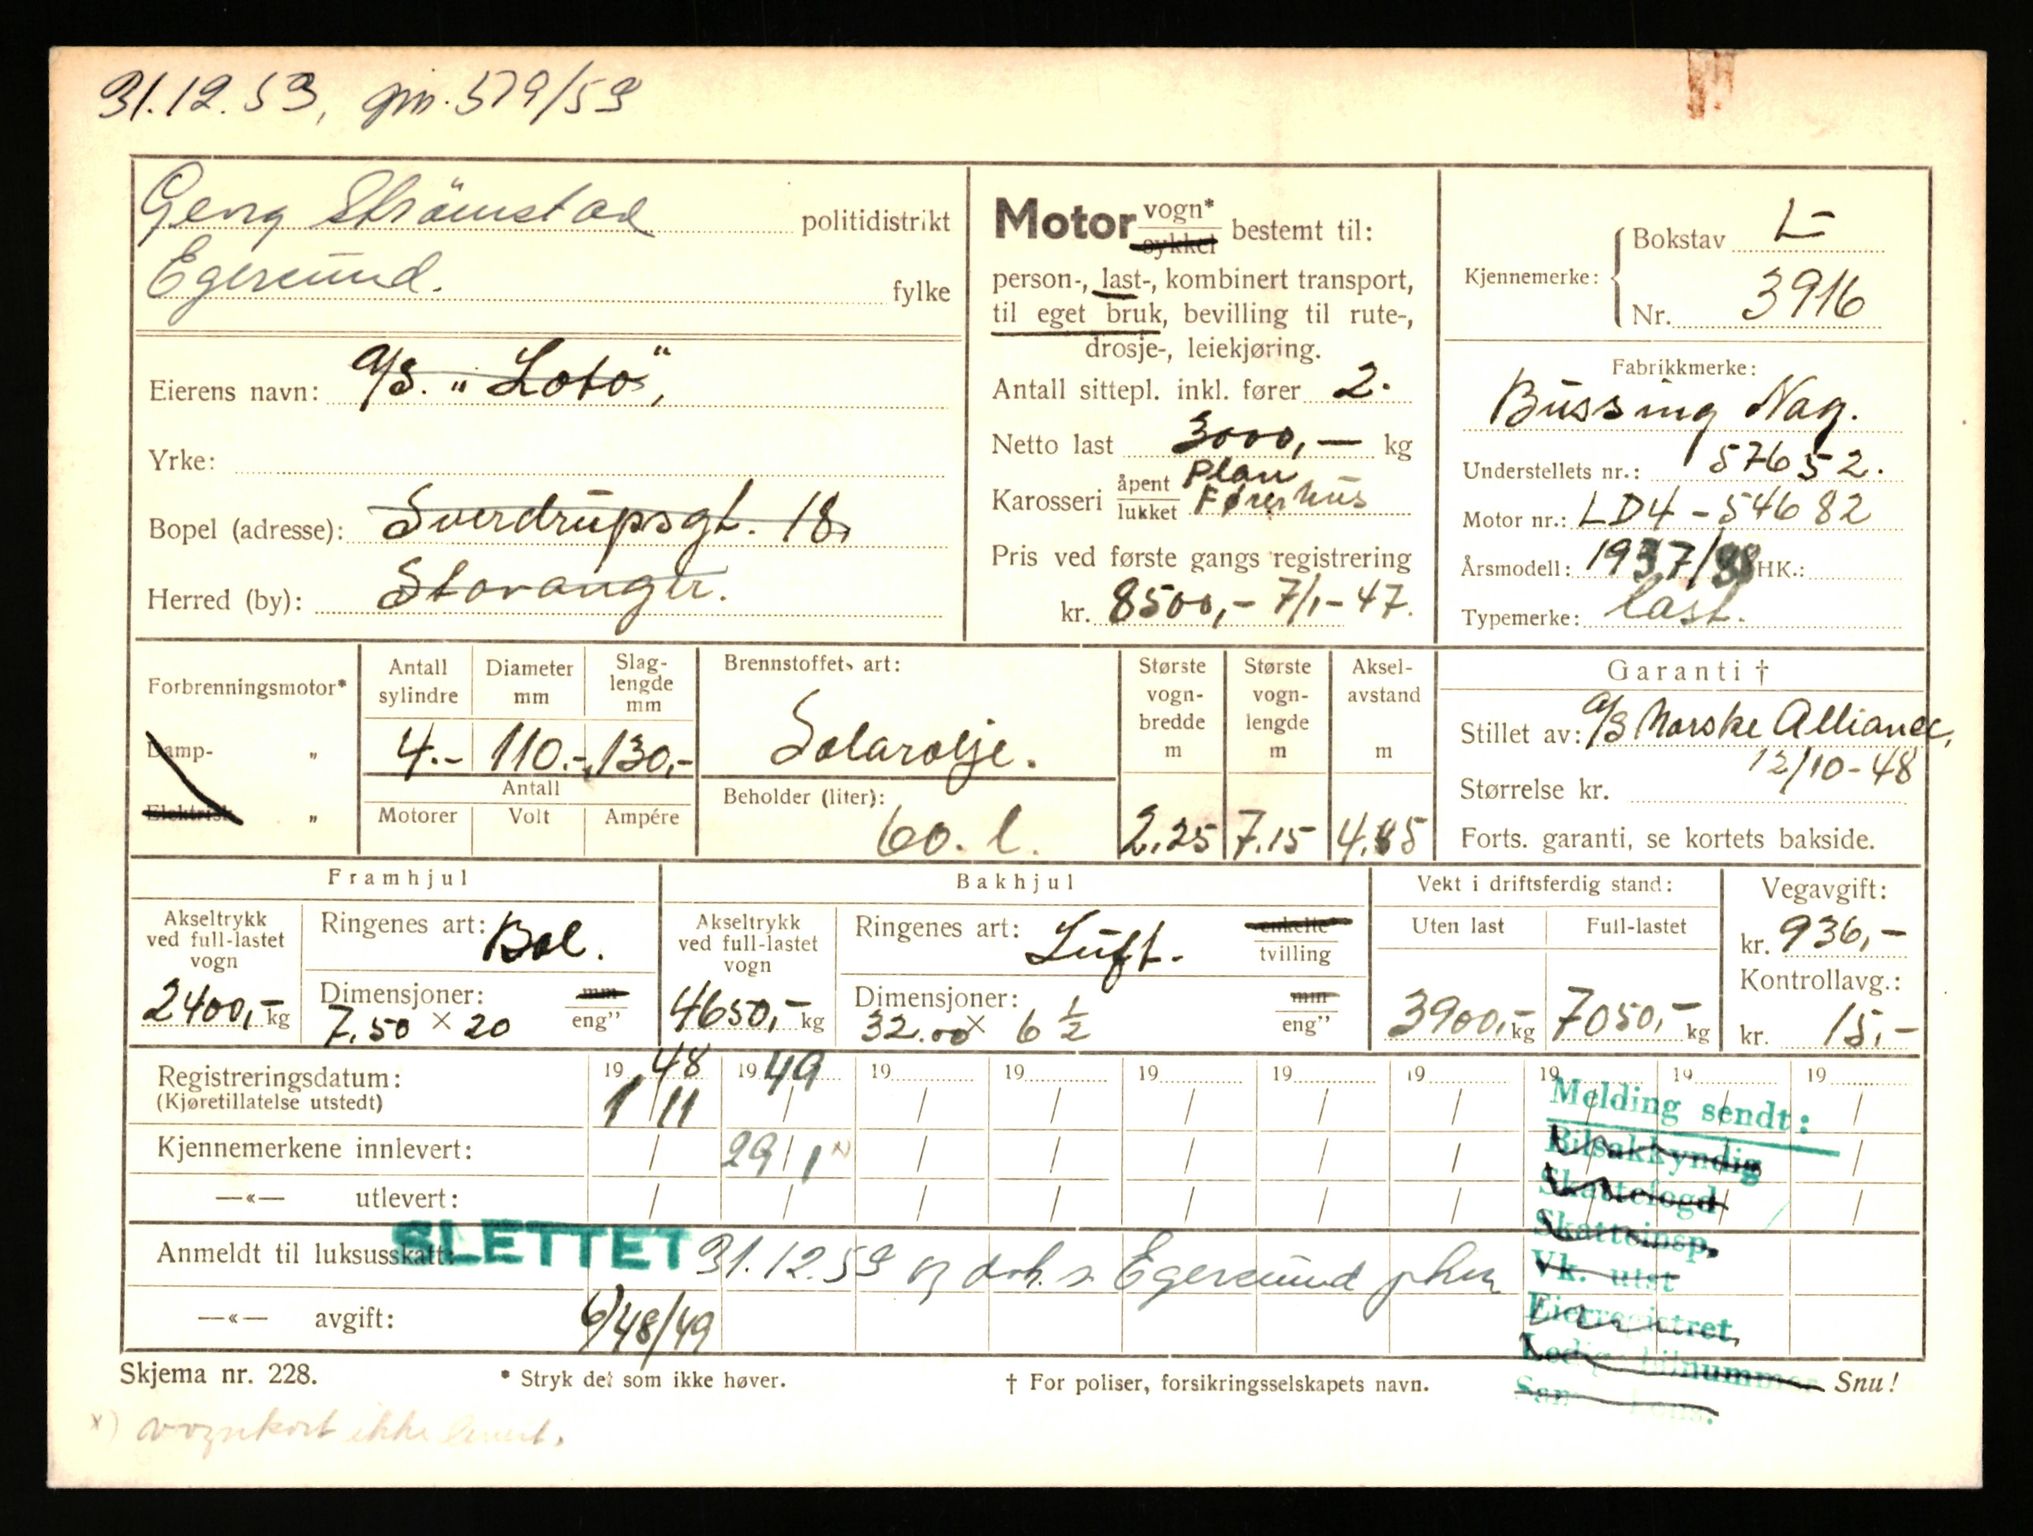 31.12.53, gm. 579/53
Georg Strømstad politidistrikt
Egersund. fylke
Eierens navn: A/S. „Loto",
Yrke:
Bopel (adresse): Sverdrüpsgt. 18,
Herred (by): Stavanger.
Motor vogn* sykkel bestemt til:
person-, last-, kombinert transport,
til eget bruk, bevilling til rute-,
drosje-, leiekjøring.
Antall sittepl. inkl. fører 2.
Netto last 3000,- kg
Karosseri åpent Plan
lukket Førerhus
Pris ved første gangs registrering
kr. 8500,- 7/1-47.
Kjennemerke: Bokstav L-
Nr. 3916
Fabrikkmerke:
Büssing Nag.
Understellets nr.: 57652.
Motor nr.: LD4-54682
Årsmodell: 1937/38 HK.:
Typemerke: last.
Forbrenningsmotor*
Damp- „
Elektrisk „
Antall sylindre
4.-
Diameter mm
110.-
Slag-lengde mm
130,-
Antall
Motorer Volt Ampére
Brennstoffets art:
Solarolje.
Beholder (liter):
60. l.
Største vogn-bredde m
2.25
Største vogn-lengde m
7.15
Aksel-avstand m
4.85
Garanti †
Stillet av: A/S Norske Alliance,
12/10-48
Størrelse kr.
Forts. garanti, se kortets bakside.
Framhjul
Akseltrykk ved full-lastet vogn
2400,- kg
Ringenes art: Bal.
Dimensjoner: mm
7.50 x 20 eng"
Bakhjul
Akseltrykk ved full-lastet vogn
4650,- kg
Ringenes art: Lüft. enkelte
tvilling
Dimensjoner: mm
32.00 x 6 1/2 eng"
Vekt i driftsferdig stand:
Uten last Full-lastet
3900,- kg 7050,- kg
Vegavgift:
kr. 936,-
Kontrollavg.:
kr. 15,-
Registreringsdatum: 19 48 19 49 19 19 19 19 19 19 19 19
(Kjøretillatelse utstedt) 1/11 / / / / / / / / /
Kjennemerkene innlevert: / 29/1 x) / / / / / / / /
—«— utlevert: / / / / / / / / / /
Anmeldt til luksusskatt: SLETTET 31.12.53 og ovh. s. Egersund
—«— avgift: 6/48/49
Melding sendt:
Bilsakkyndig
Skattefogd
Skatteinsp.
Vk. utst
Eierregistret
Ledige bilnummer
Skjema nr. 228.
* Stryk det som ikke høver.
† For poliser, forsikringsselskapets navn.
Snu!
x) vognkort ikke levert.